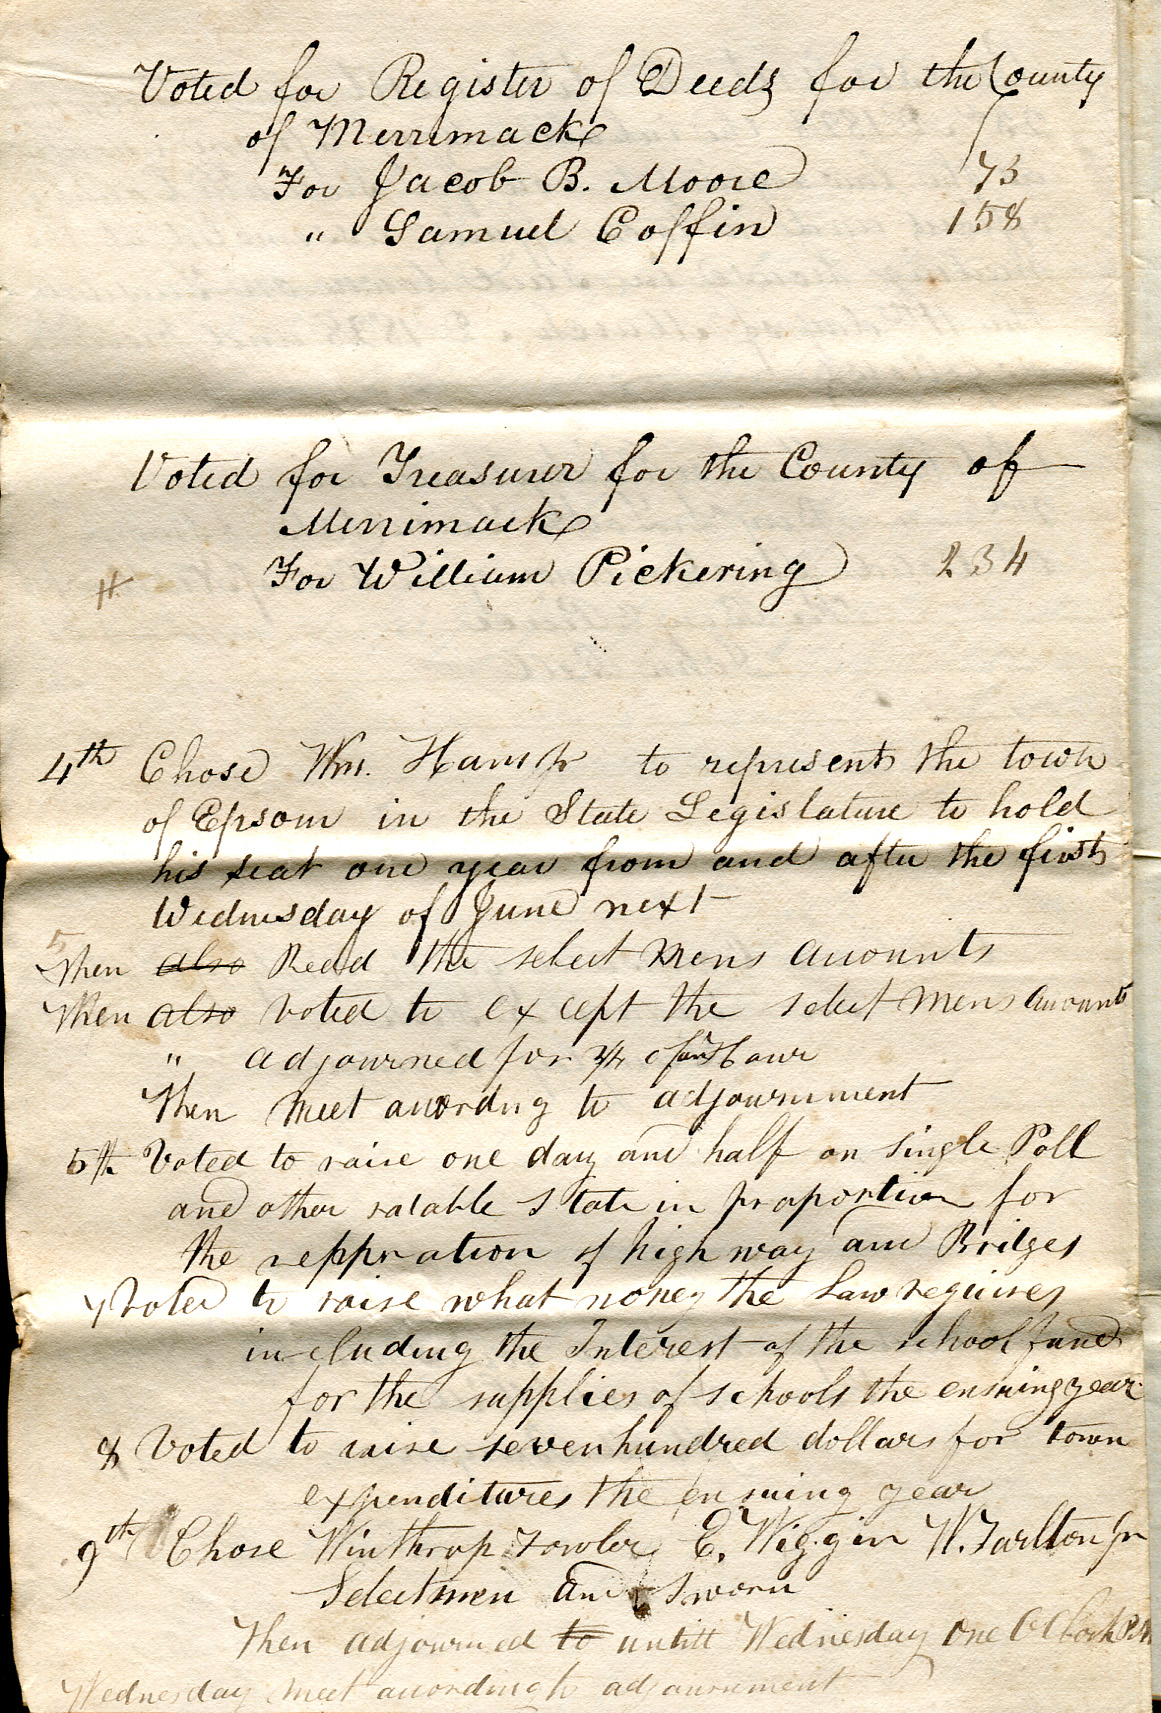 Voted for Register of Deeds for the County
of Merrimack
For Jacob B. Moore 73
" Samuel Coffin 158
Voted for Treasurer for the County of
Merrimack
For William Pickering 234
4th Chose Wm. Ham Jr to represent the town
of Epsom in the State Legislature to hold
his seat one year from and after the first
Wednesday of June next
5
Then also Read the select mens acounts
Then also voted to except the select mens acounts
" adjourned for of an Hour
Then meet acordng to adjournment
5th Voted to raise one day and half on single Poll
and other ratable State in proportion for
the reppration of high way and Bridges
7 Voted to raise what money the Law requires
including the Interest of the school fund
for the supplies of schools the ensuing year
8 Voted to raise seven hundred dollars for town
expenditures the ensuing year
9th Chose Winthrop Fowler, E. Wiggin W. Tarlton Jr
Selectmen and Sworn
Then adjourned to untill Wednesday One OClock P.M
Wednesday meet acording to adjournment